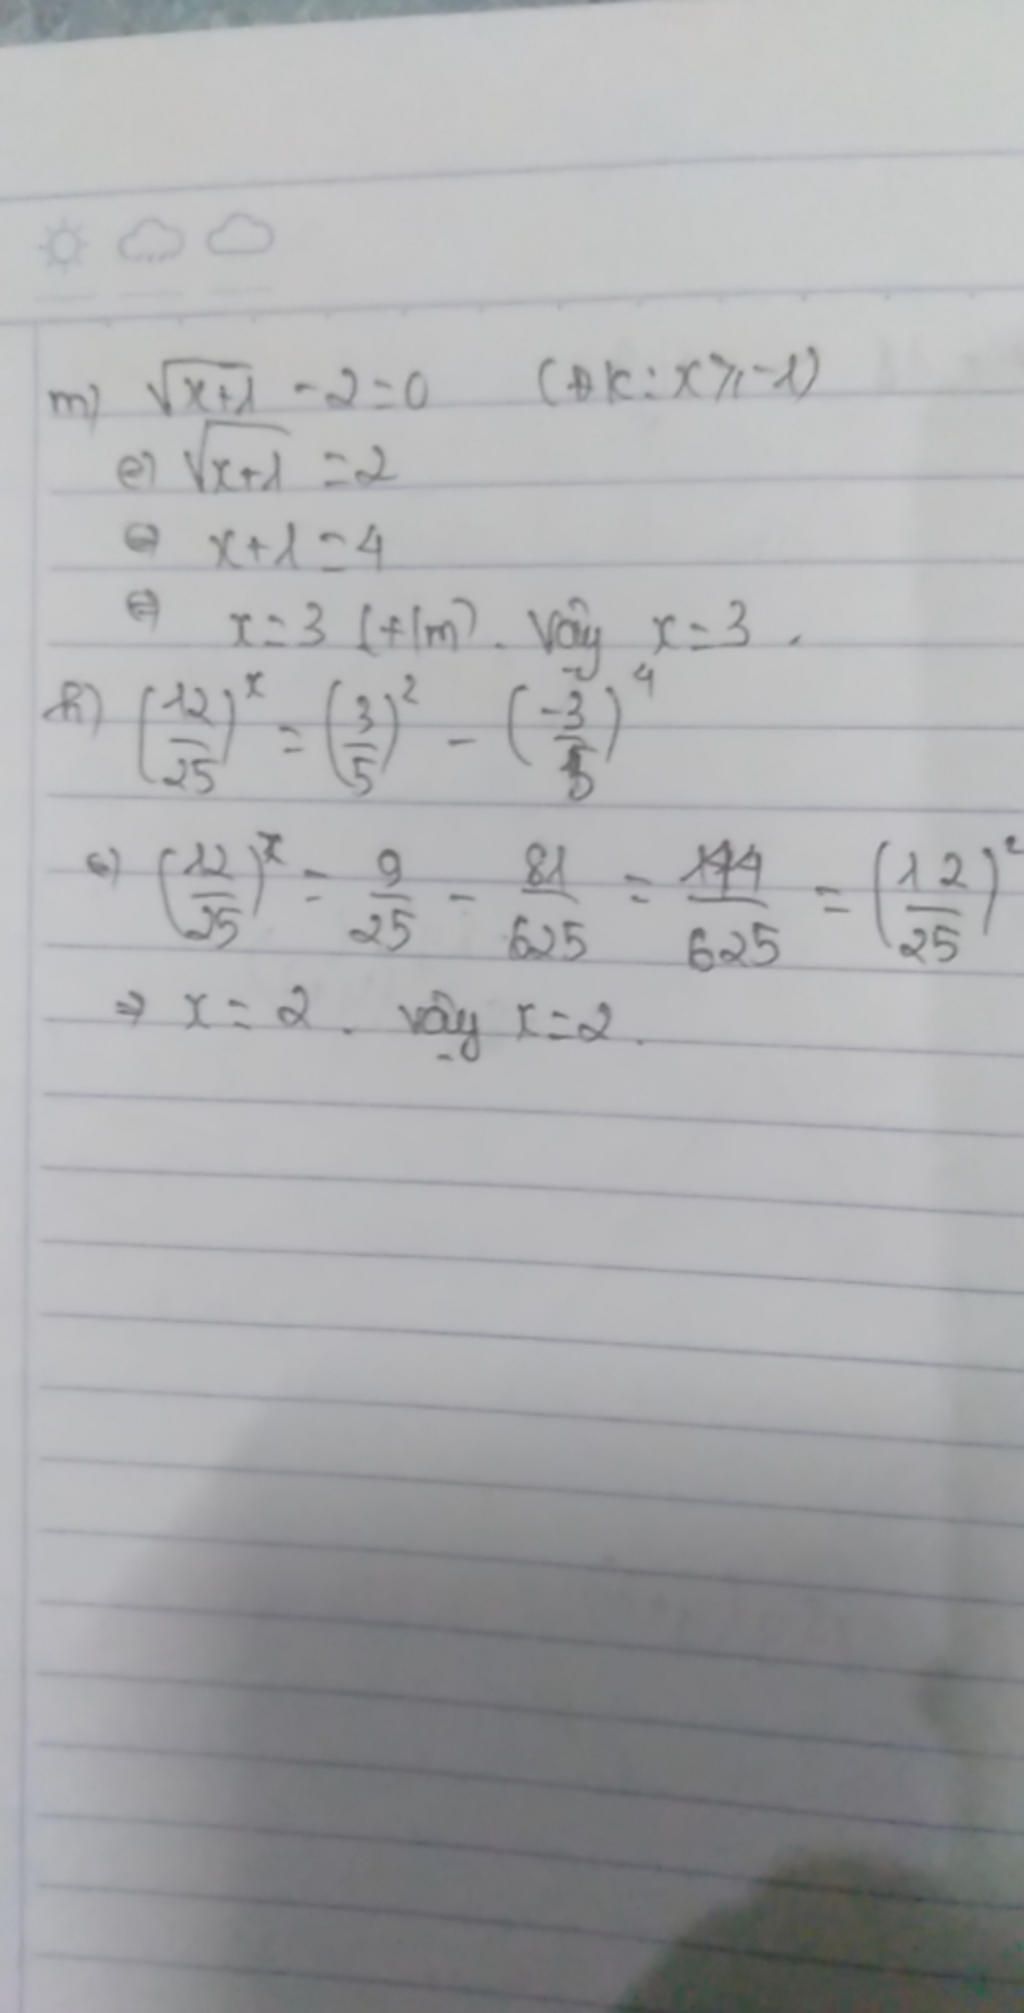 m) √(x+1) - 2 = 0 (ĐK: x ≥ -1)
⇔ √(x+1) = 2
⇔ x+1 = 4
⇔ x = 3 (t/m). Vậy x = 3.
h) (12/25)^x = (3/5)^2 - (-3/5)^4
⇔ (12/25)^x = 9/25 - 81/625 = 144/625 = (12/25)^2
⇒ x = 2. Vậy x = 2.